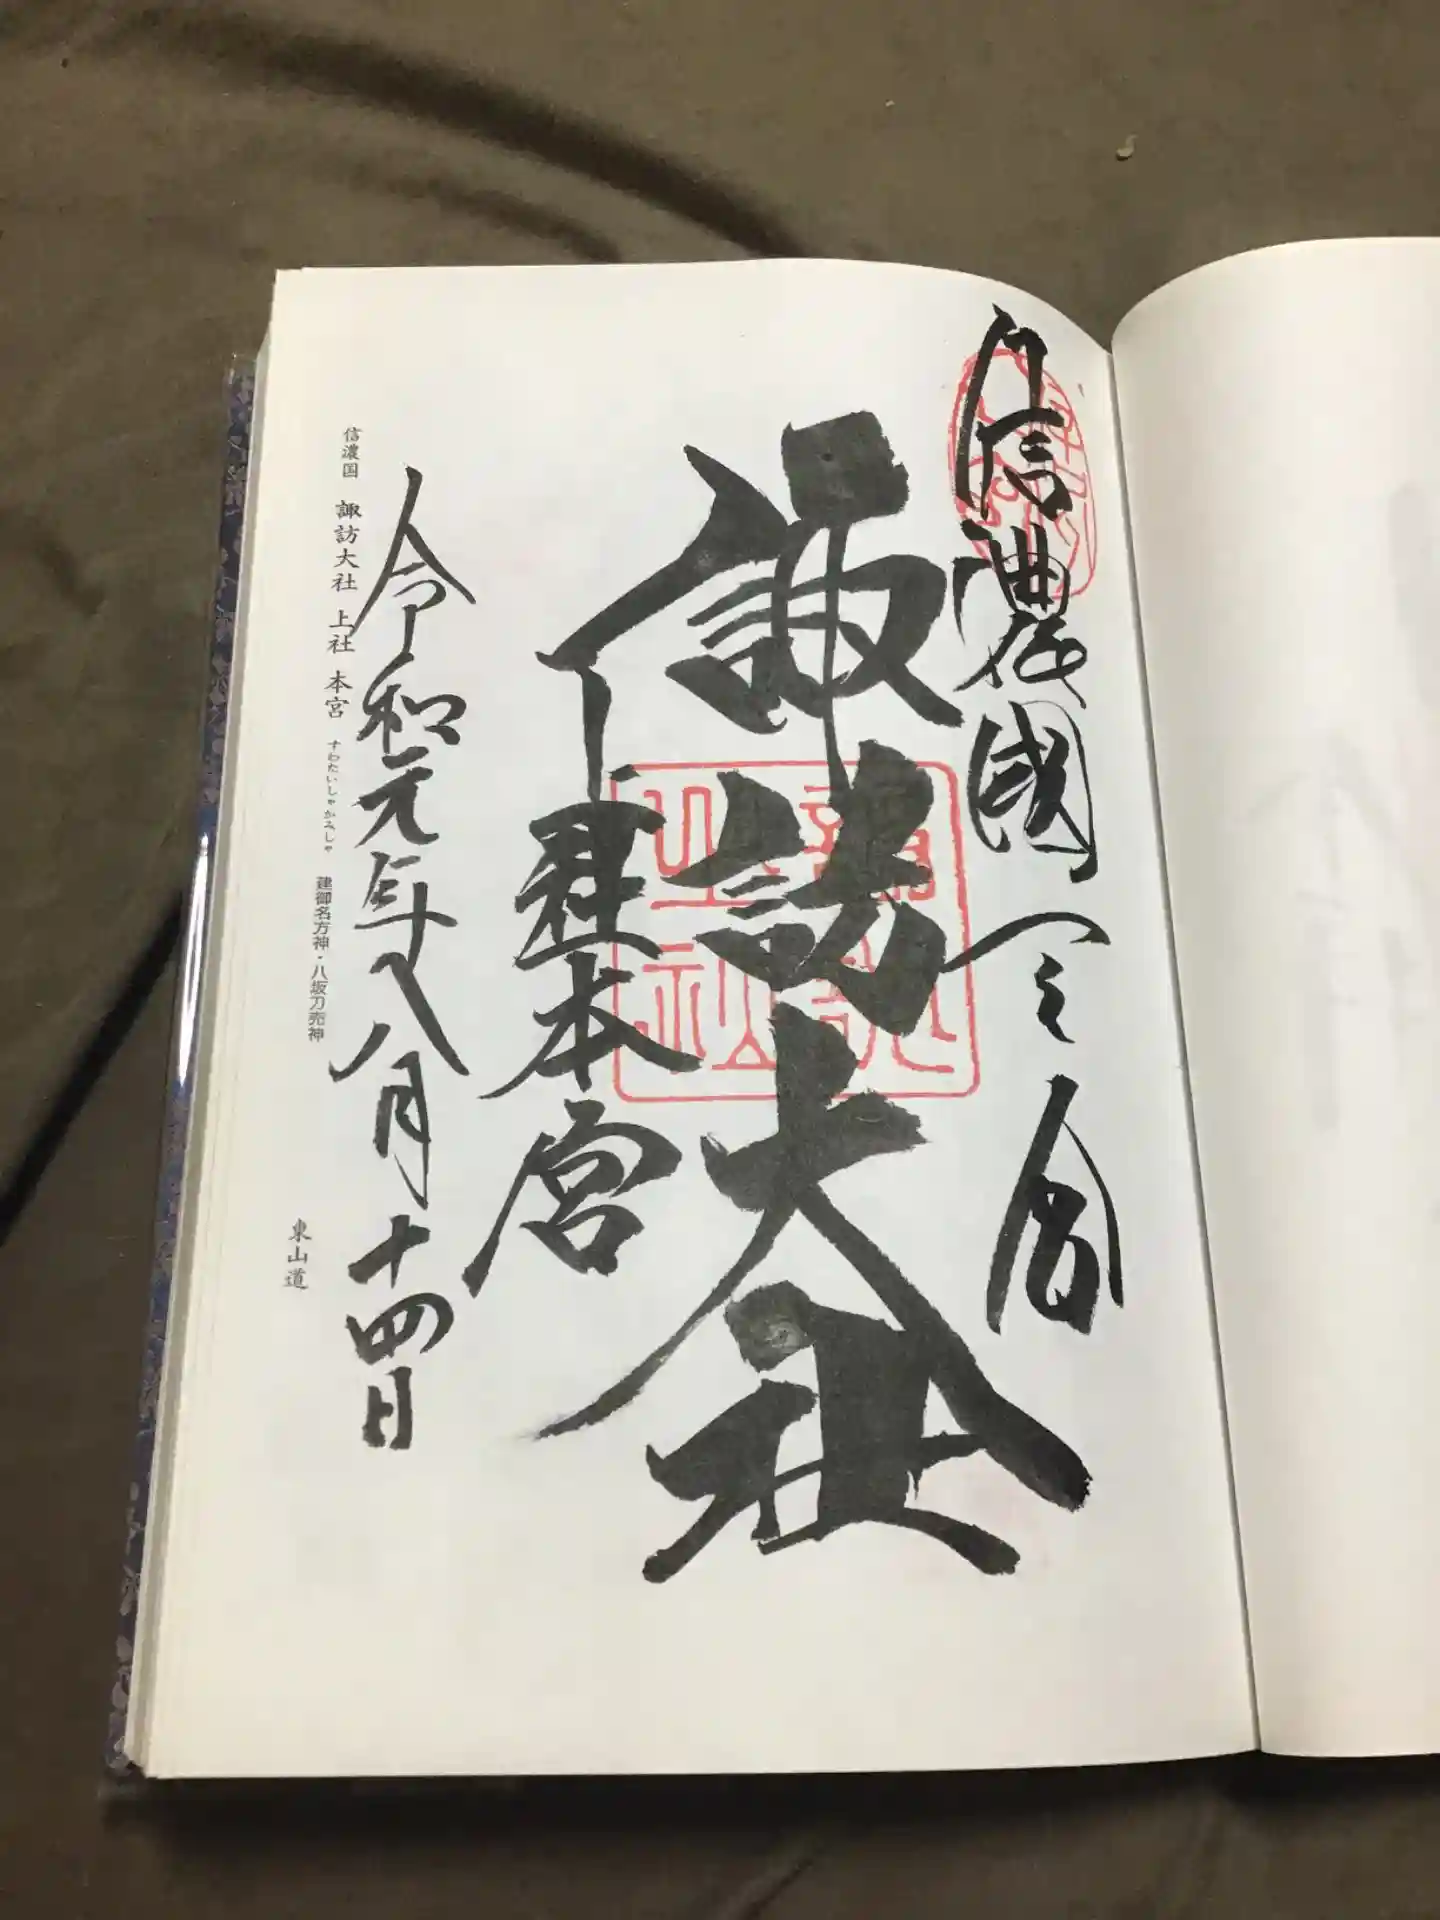 信濃國一之宮
諏訪大社
上社本宮
令和元年八月十四日
信濃国 諏訪大社 上社 本宮 すわたいしゃかみしゃ 建御名方神・八坂刀売神
東山道